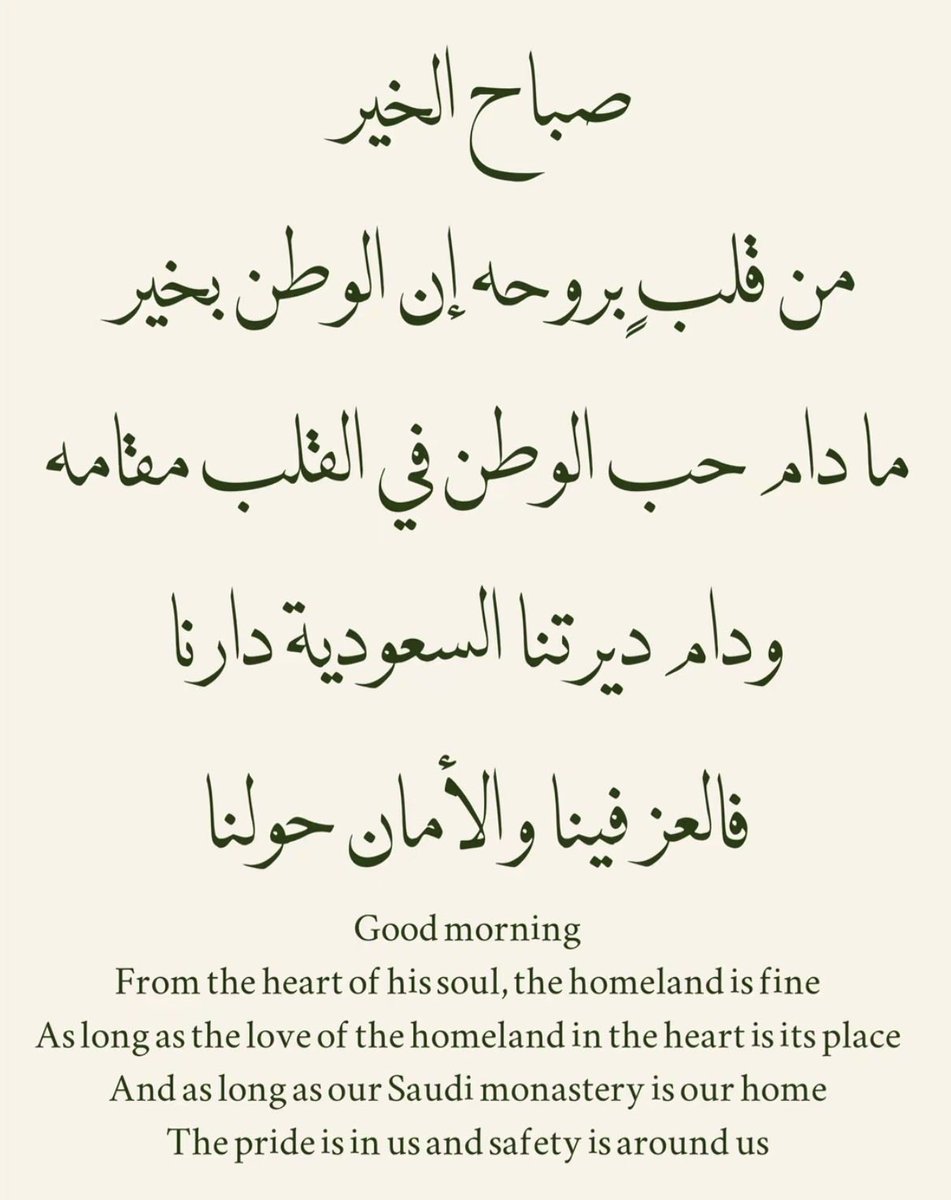 صباح الخير
من قلبٍ بروحه إن الوطن بخير
ما دام حب الوطن في القلب مقامه
ودام ديرتنا السعودية دارنا
فالعز فينا والأمان حولنا
Good morning
From the heart of his soul, the homeland is fine
As long as the love of the homeland in the heart is its place
And as long as our Saudi monastery is our home
The pride is in us and safety is around us